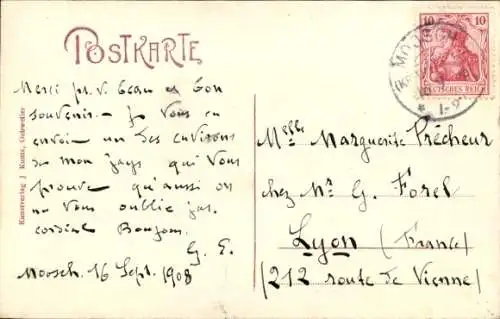 POSTKARTE
Merci pr. v. beau et bon
souvenir. Je vous en
envoie un des environs
de mon pays qui vous
prouve qu'aussi on
ne vous oublie pas.
cordial Bonjour.
G. F.
Moosch. 16 Sept. 1908
Kunstverlag J. Kuntz, Gebweiler
10 10
DEUTSCHES REICH
MOOSCH
1-2
Melle Marguerite Prêcheur
chez Mr G. Forel
Lyon (France)
(212 route de Vienne)